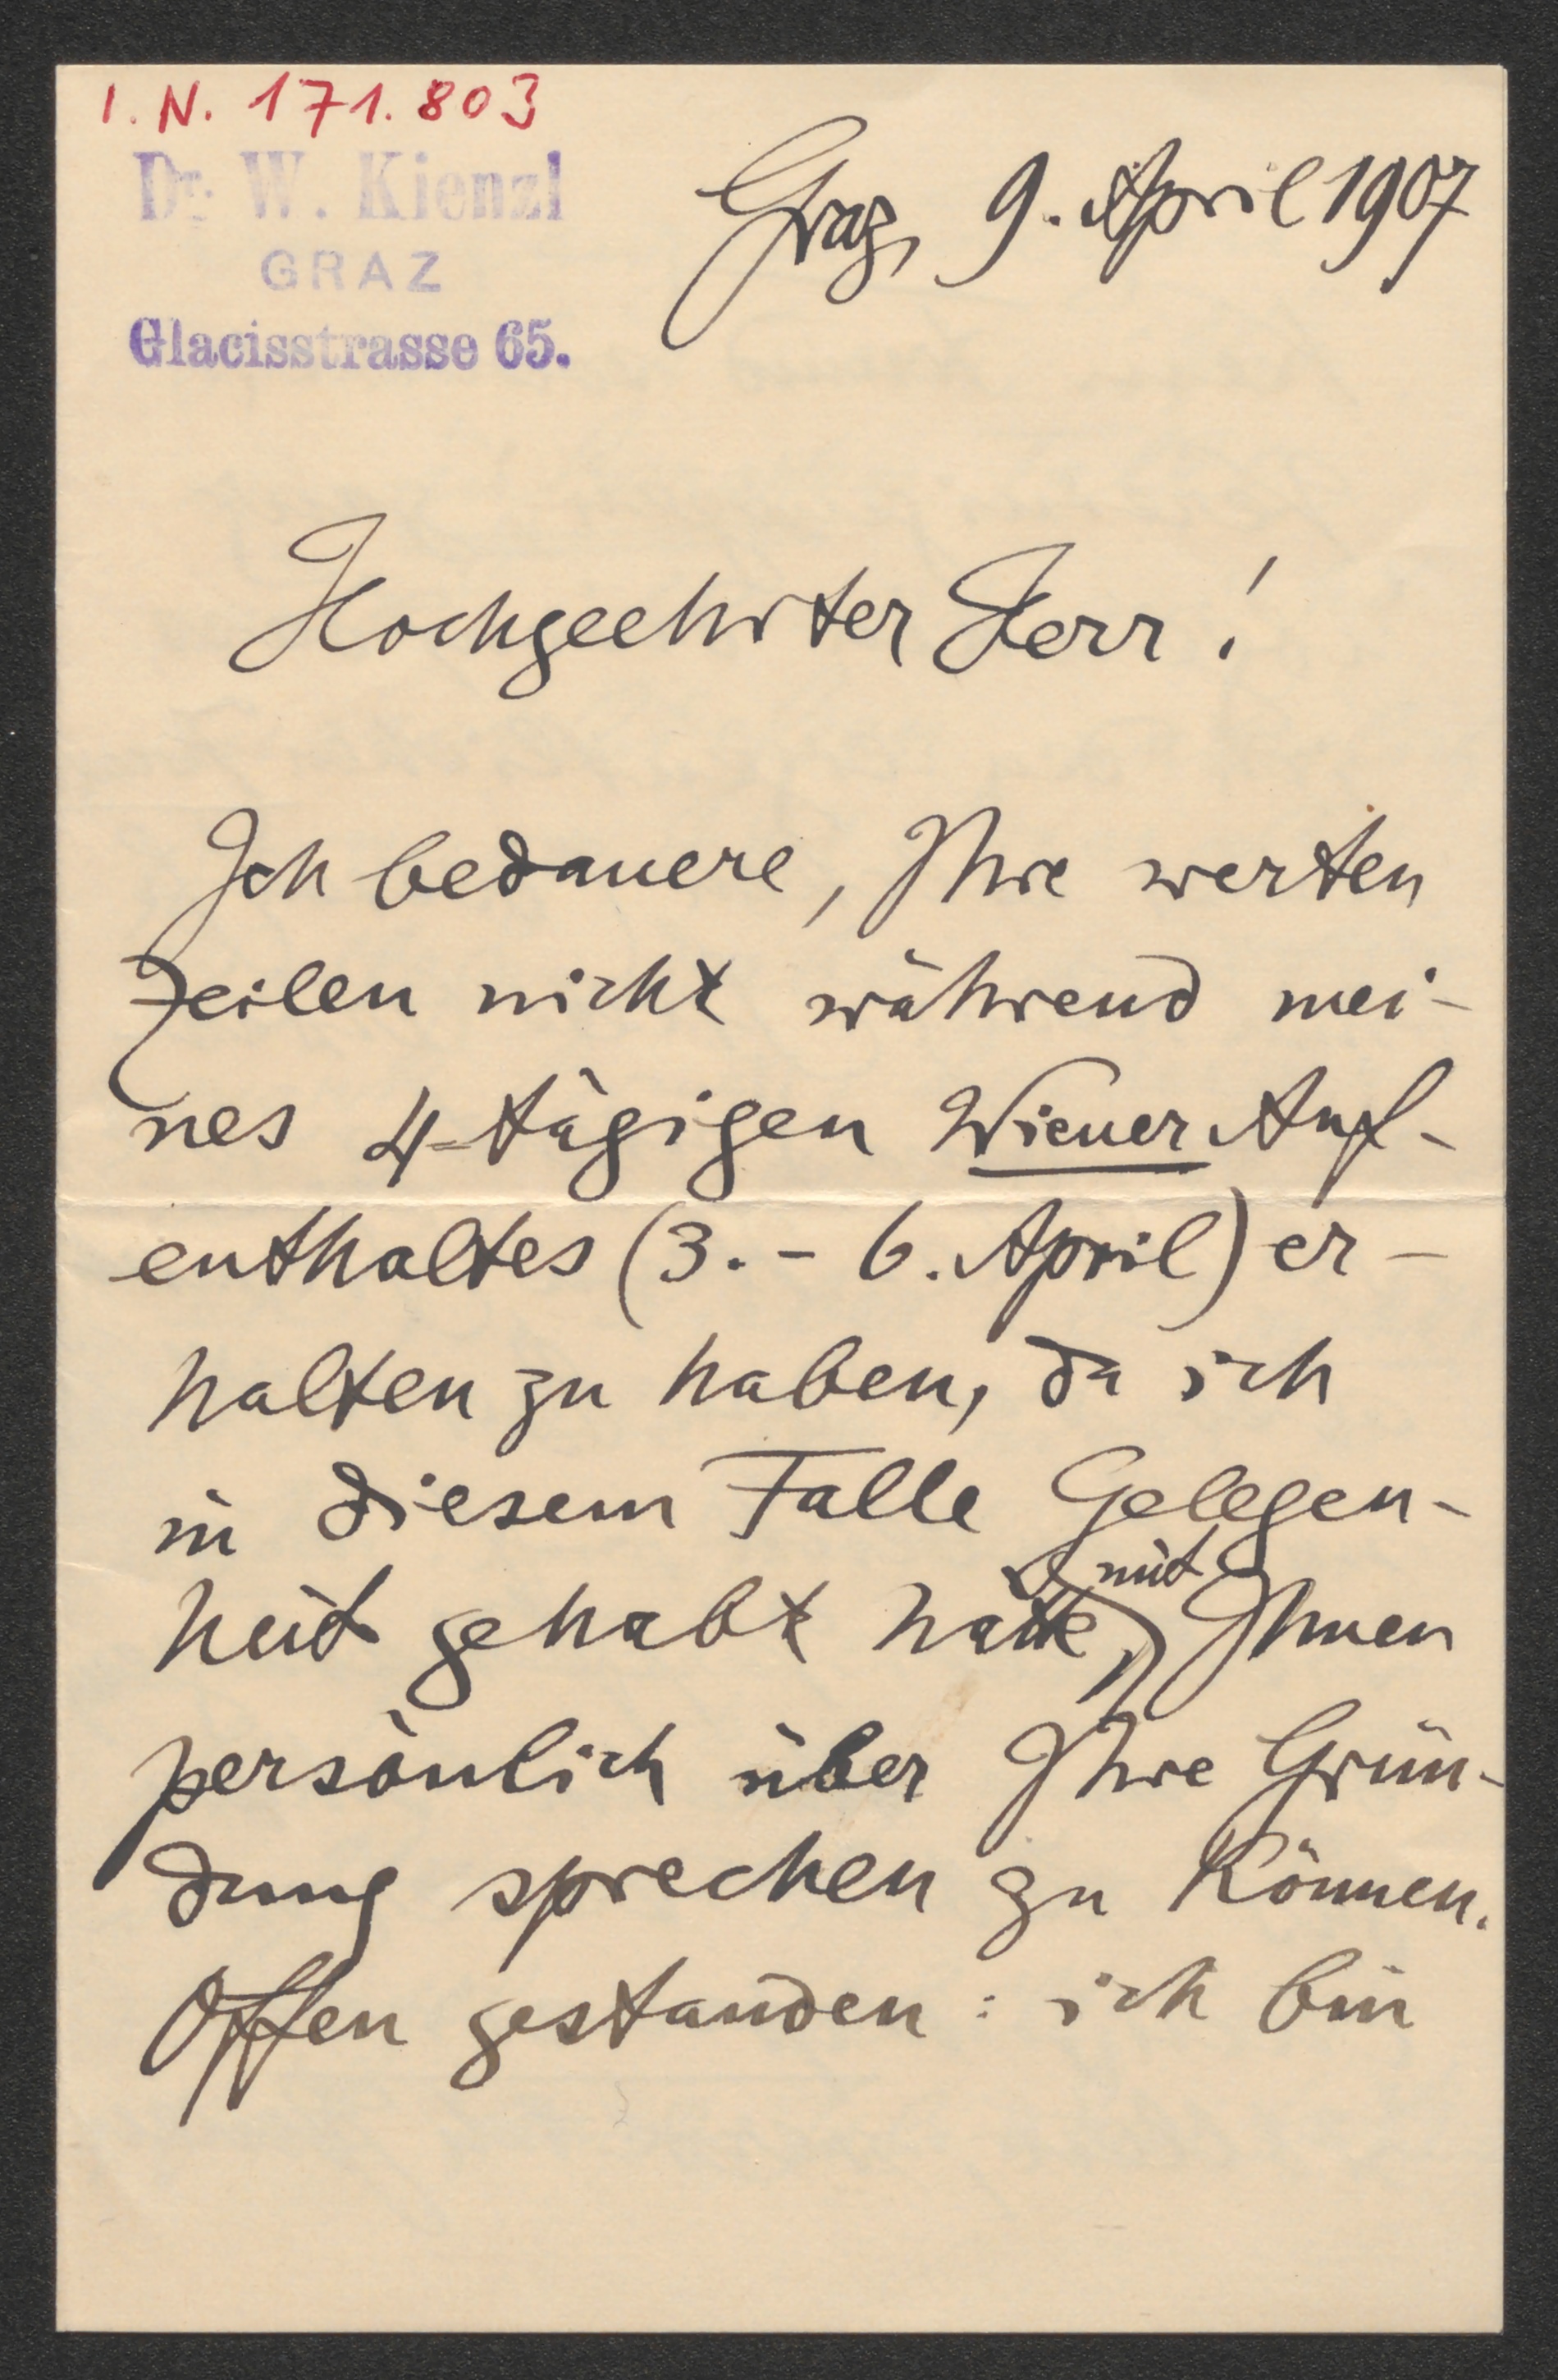 I. N. 171.803
Dr. W. Kienzl
GRAZ
Glacisstrasse 65.
Graz, 9. April 1907
Hochgeehrter Herr!
Ich bedauere, Ihre werten
Zeilen nicht während mei-
nes 4-tägigen Wiener Auf-
enthaltes (3. - 6. April) er-
halten zu haben, da ich
in diesem Falle Gelegen-
heit gehabt hätte, mit Ihnen
persönlich über Ihre Grün-
dung sprechen zu können.
Offen gestanden: ich bin